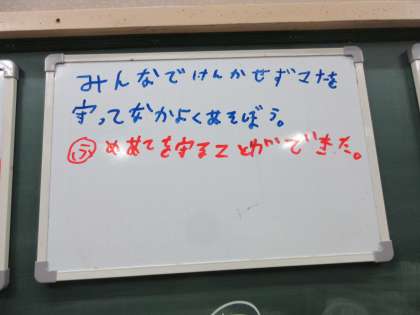 みんなでけんかせずマナーを
守ってなかよくあそぼう。
ふ めあてを守ることができた。